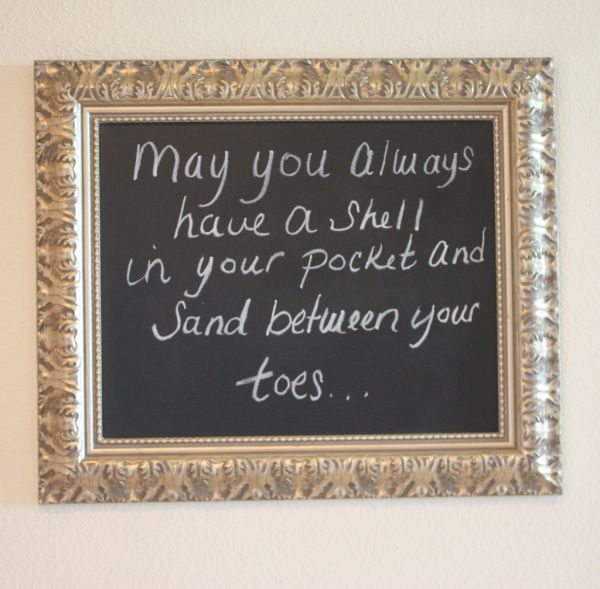 May you always
have a shell
in your pocket and
Sand between your
toes...